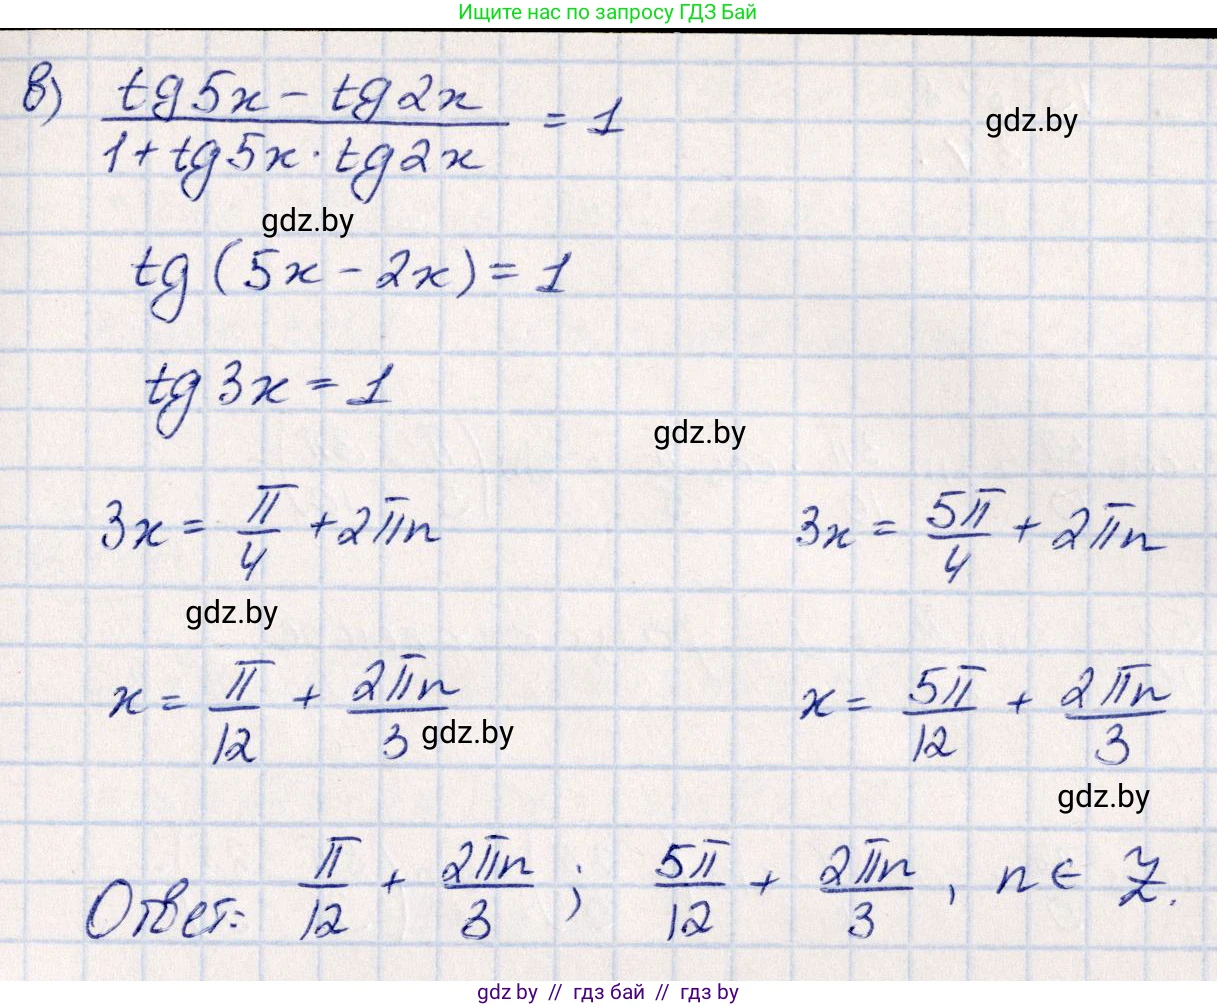 Ищите нас по запросу ГДЗ Бай
в) (tg5x - tg2x)/(1 + tg5x · tg2x) = 1
gdz.by
gdz.by
tg (5x - 2x) = 1
tg 3x = 1
gdz.by
3x = π/4 + 2πn 3x = 5π/4 + 2πn
gdz.by
x = π/12 + 2πn/3 x = 5π/12 + 2πn/3
gdz.by
gdz.by
Ответ: π/12 + 2πn/3 ; 5π/12 + 2πn/3 , n ∈ Z.
gdz by // гдз бай // gdz by